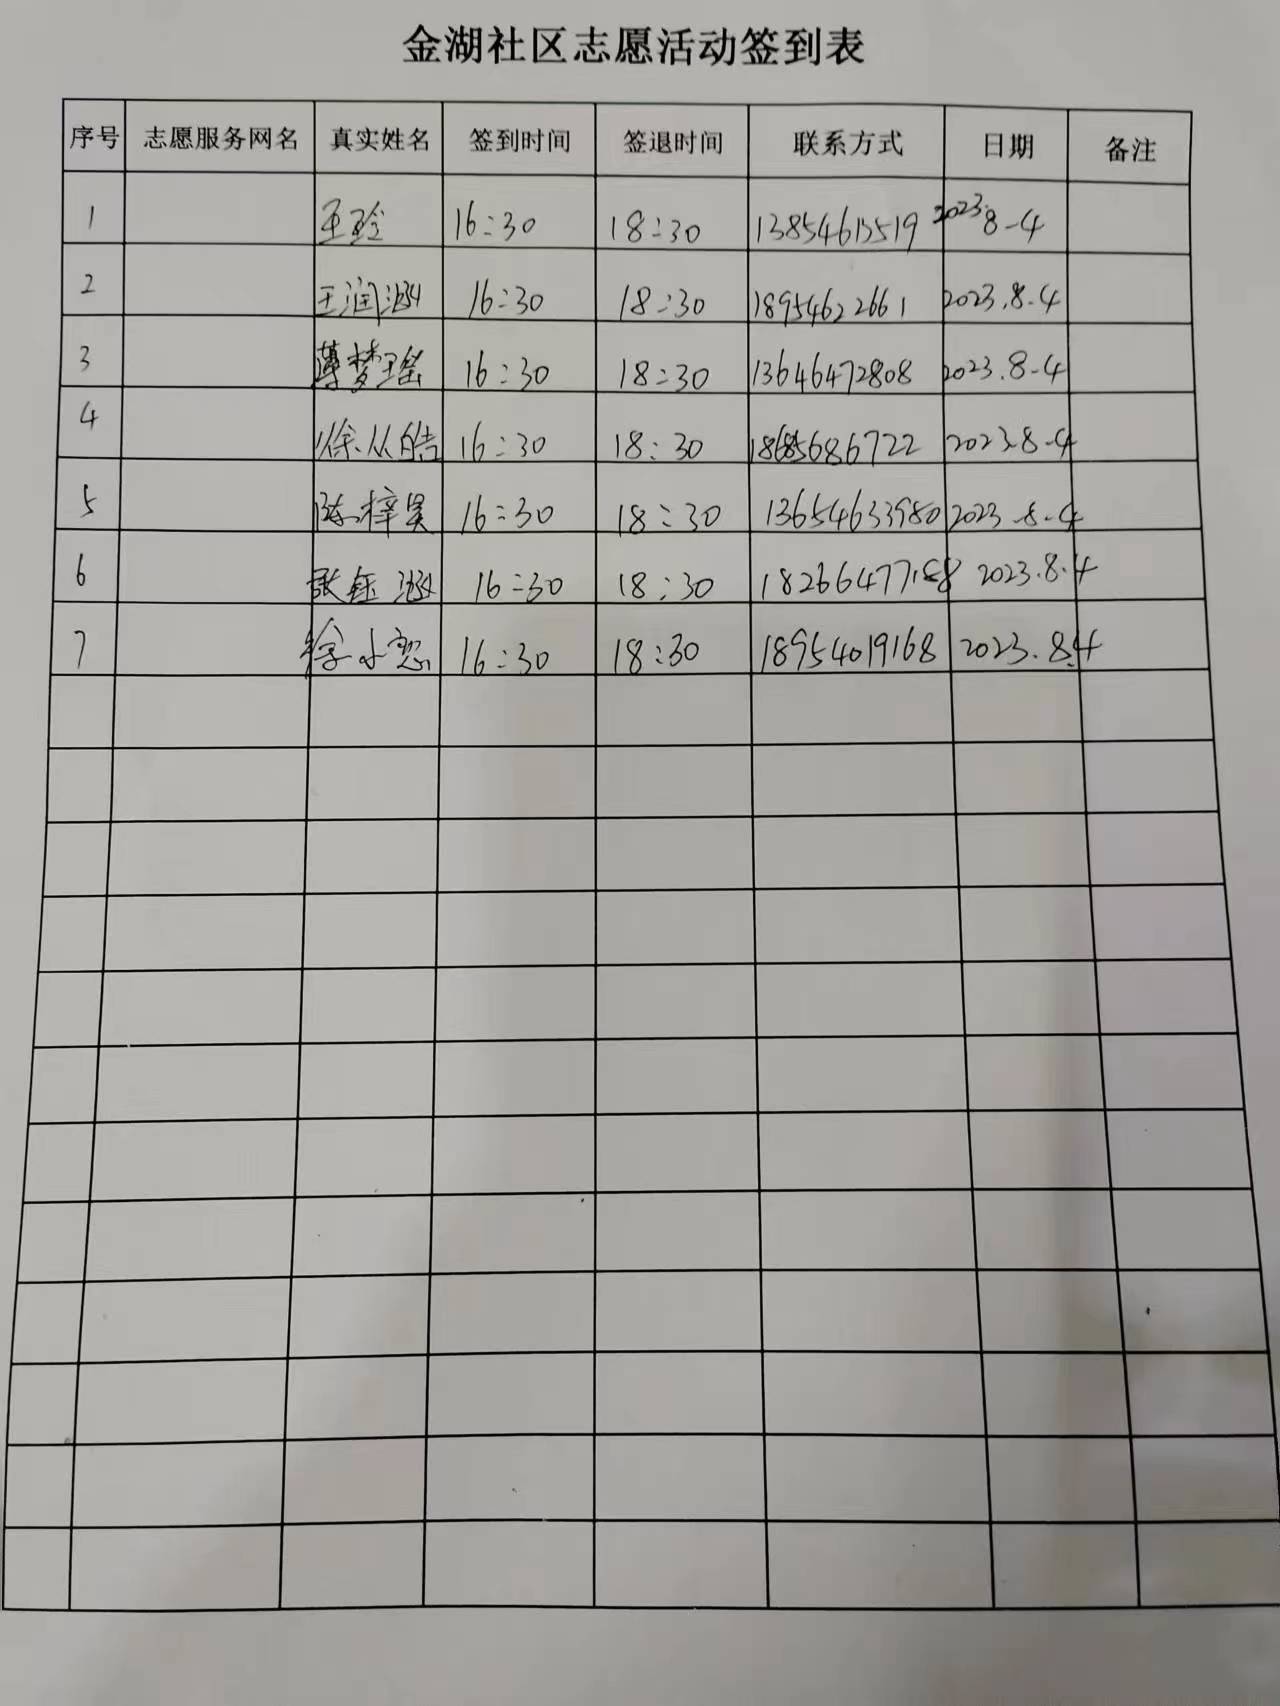 金湖社区志愿活动签到表
序号 志愿服务网名 真实姓名 签到时间 签退时间 联系方式 日期 备注
1 王玲 16:30 18:30 13854615519 2023.8-4
2 王润涵 16:30 18:30 18954622661 2023.8-4
3 薄梦瑶 16:30 18:30 13646472808 2023.8-4
4 徐从皓 16:30 18:30 18685686722 2023.8-4
5 陈梓昊 16:30 18:30 13654633980 2023.8-4
6 张钰涵 16:30 18:30 2023.8.4
7 徐小 16:30 18:30 18954019168 2023.8.4